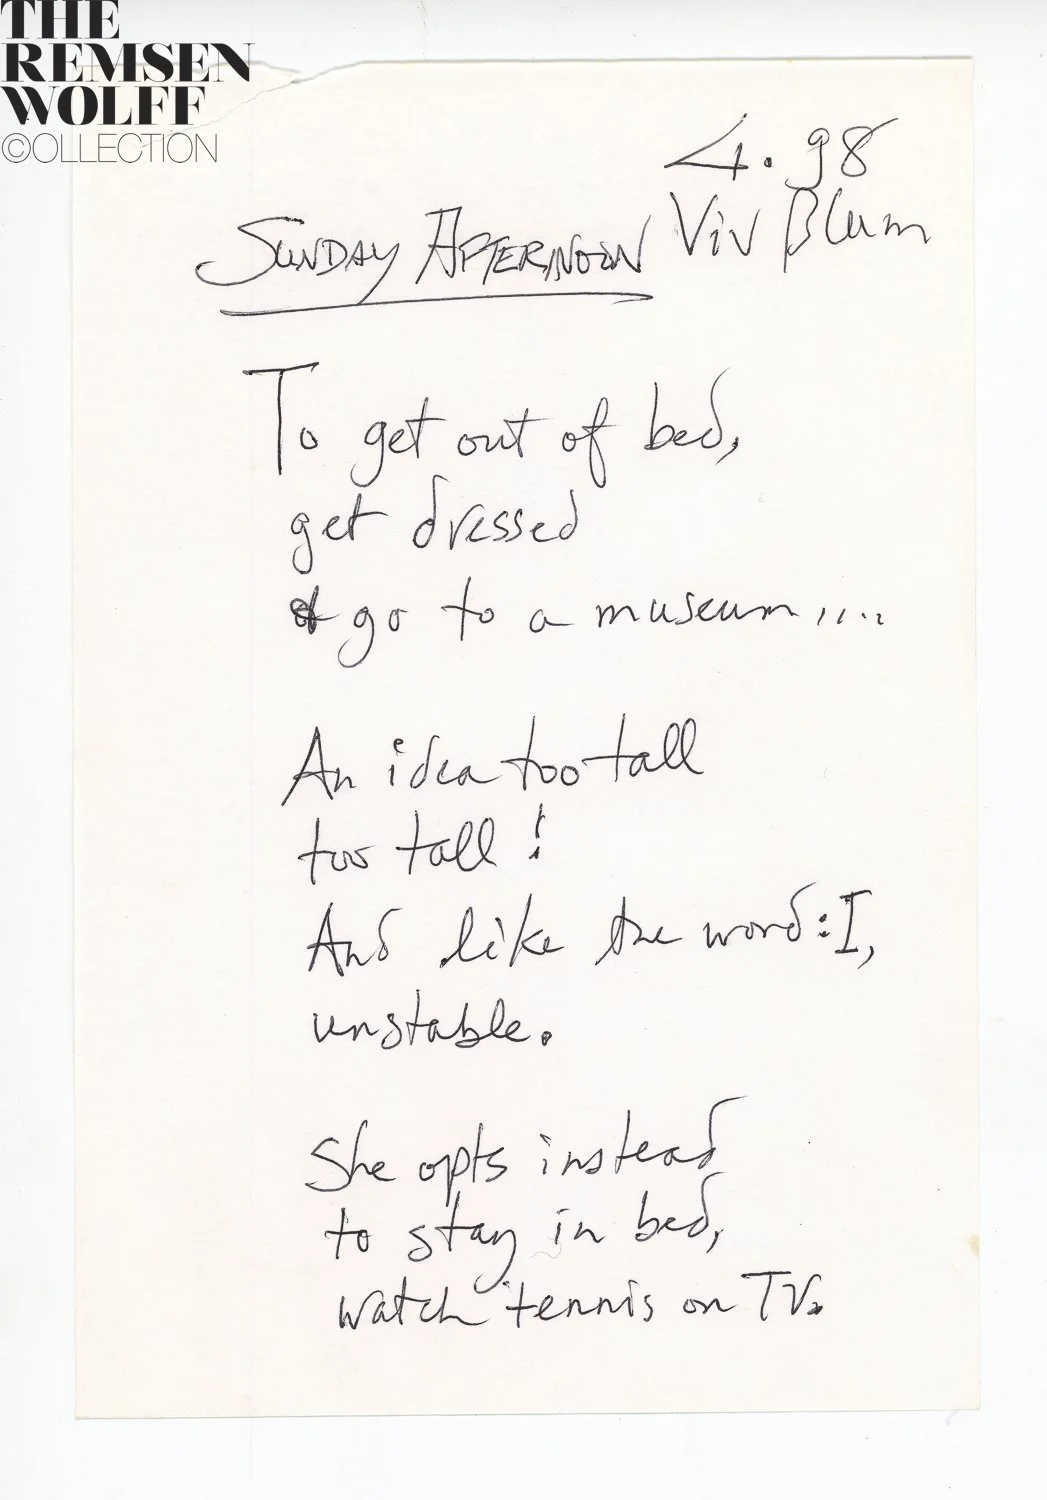 THE
REMSEN
WOLFF
©OLLECTION
4.98
SUNDAY AFTERNOON Viv Blum
To get out of bed,
get dressed
& go to a museum....
An idea too tall
too tall!
And like the word: I,
unstable.
She opts instead
to stay in bed,
watch tennis on TV.